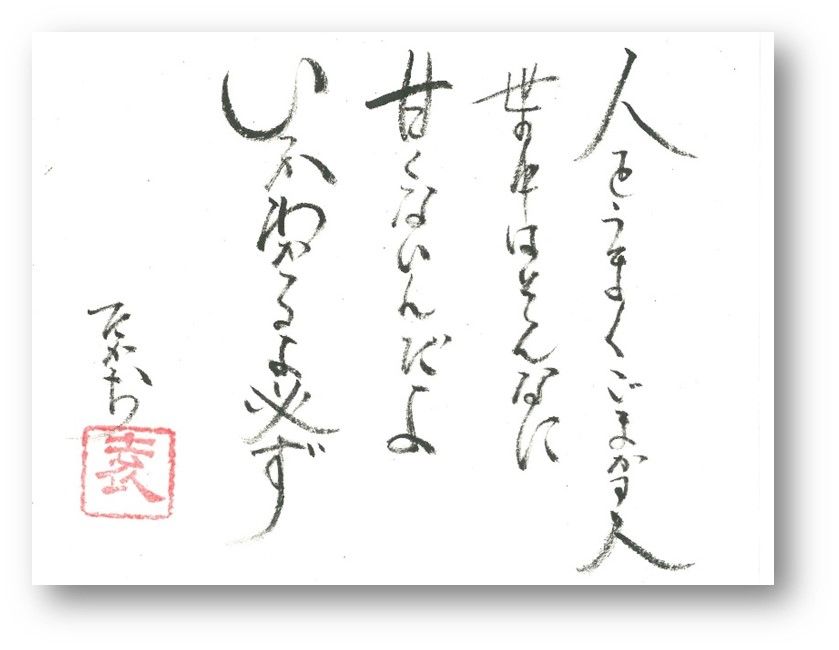 人をうまくごまかす人
世の中はそんなに
甘くないんだよ
いつかわかるよ必ず